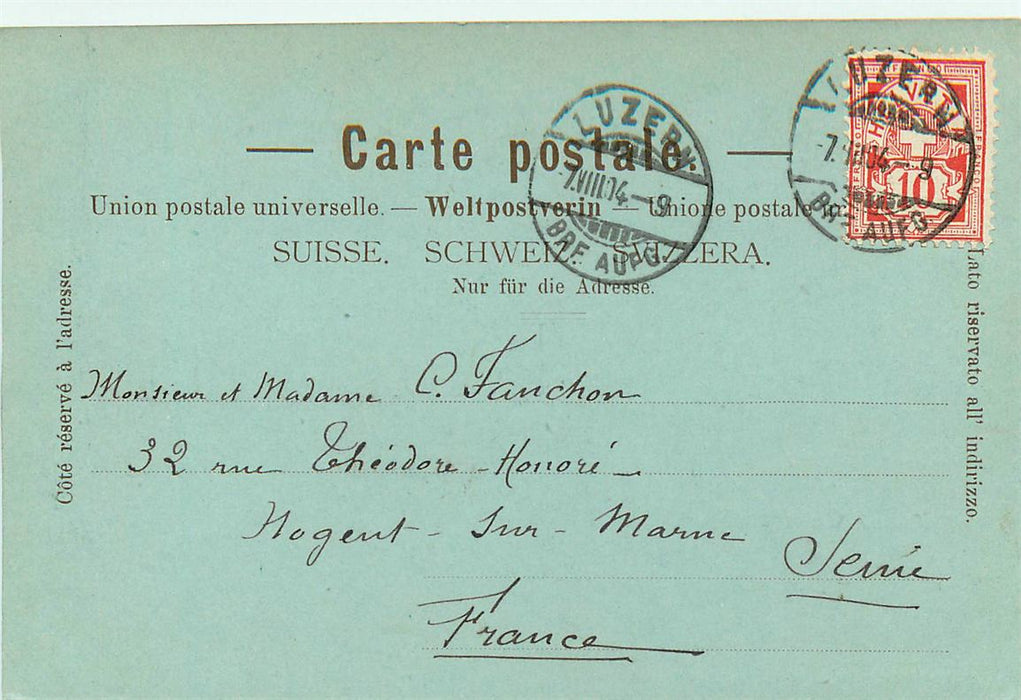 — Carte postale. —
Union postale universelle. — Weltpostverein — Unione postale
SUISSE. SCHWEIZ. SVIZZERA.
Nur für die Adresse.
Côté réservé à l'adresse.
Lato riservato all' indirizzo.
LUZERN
7.VIII.04—9
BRF. AUFG.
LUZERN
-7.VIII.04—9
BRF. AUFG.
10
Monsieur et Madame C. Fanchon
32 rue Théodore-Honoré
Nogent-Sur-Marne
Seine
France